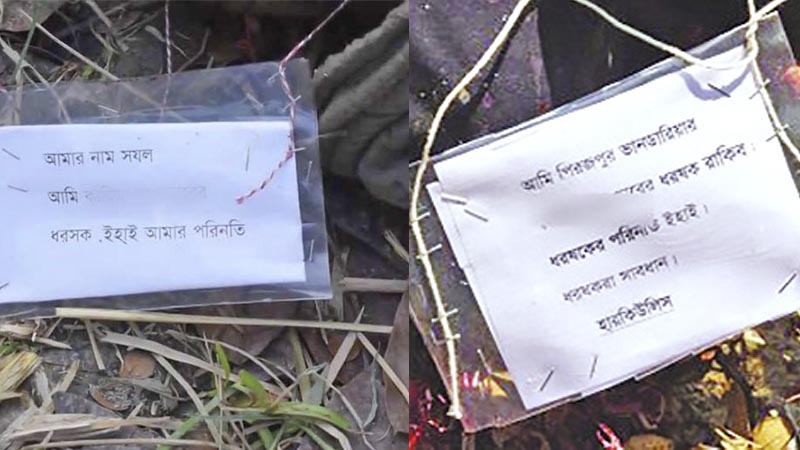 আমার নাম সযল
আমি
ধরসক ,ইহাই আমার পরিনতি
আমি পিরজপুর ভানডারিয়ার
ধরষক রাকিব।
ধরষকের পরিনতি ইহাই।
ধরষকরা সাবধান।
হারকিউলিস